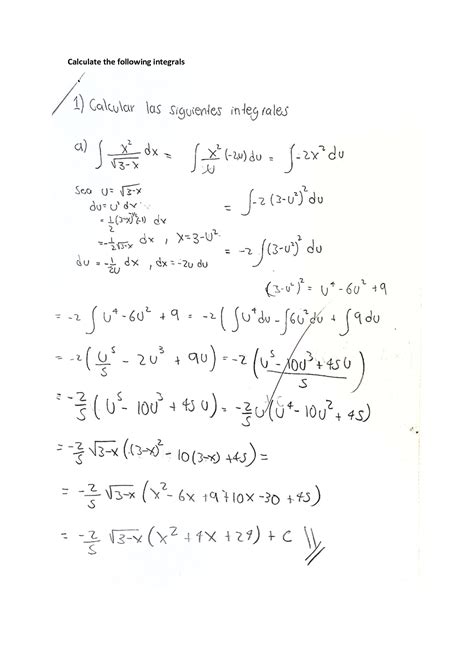 Calculate the following integrals
1) Calcular las siguientes integrales
a) ∫ x²/√(3-x) dx = ∫ x²/u (-2u) du = ∫ -2x² du
Sea u = √3-x
du = u' dx
= 1/2 (3-x)^(-1/2) (-1) dx
= ∫ -2 (3-u²)² du
= -1/(2√3-x) dx , x = 3-u²
= -2 ∫ (3-u²)² du
du = -1/(2u) dx , dx = -2u du
(3-u²)² = u⁴ - 6u² + 9
= -2 ∫ u⁴ - 6u² + 9 = -2 ( ∫ u⁴ du - ∫ 6u² du + ∫ 9 du
= -2 ( u⁵/5 - 2u³ + 9u ) = -2 ( (u⁵ - 10u³ + 45u)/5 )
= -2/5 ( u⁵ - 10u³ + 45u ) = -2/5 u ( u⁴ - 10u² + 45 )
= -2/5 √3-x ( (3-x)² - 10(3-x) + 45 ) =
= -2/5 √3-x ( x² - 6x + 9 + 10x - 30 + 45 )
= -2/5 √3-x ( x² + 4x + 24 ) + C //